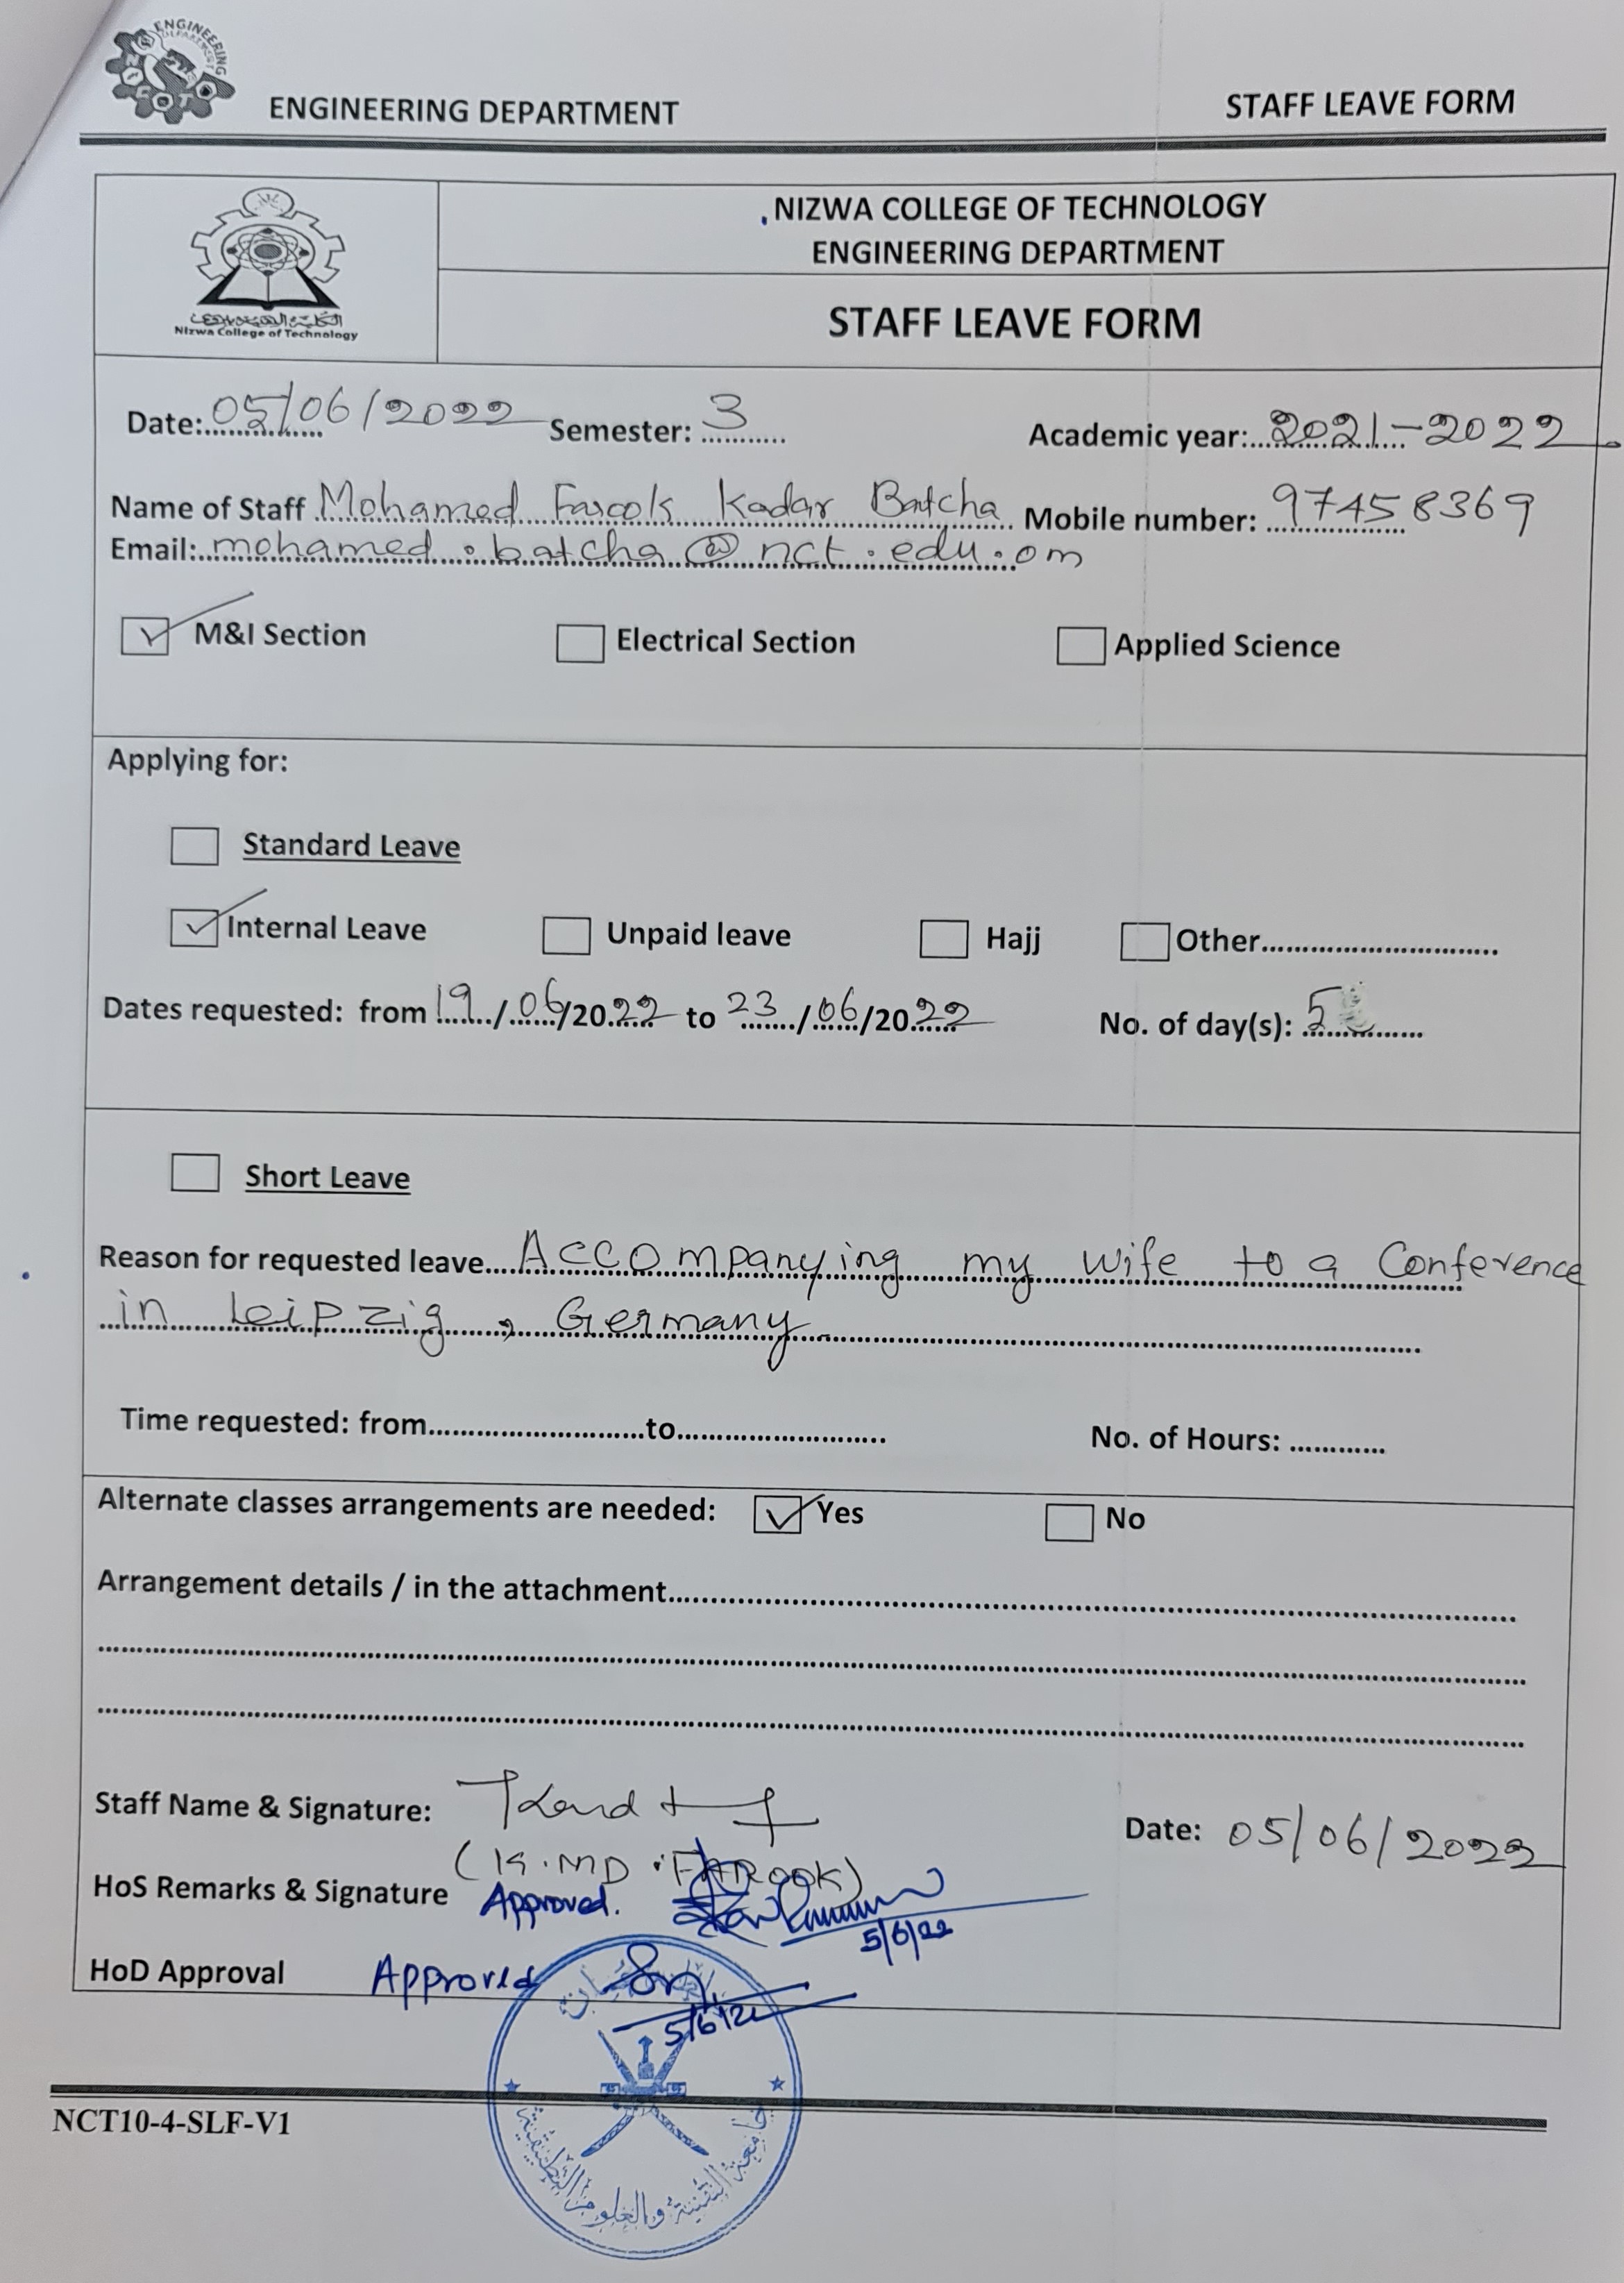 ENGINEERING DEPARTMENT
ENGINEERING DEPARTMENT STAFF LEAVE FORM
NIZWA COLLEGE OF TECHNOLOGY
ENGINEERING DEPARTMENT
Nizwa College of Technology
STAFF LEAVE FORM
Date: 05/06/2022 Semester: 3 Academic year: 2021-2022
Name of Staff Mohamed Farook Kadar Batcha Mobile number: 97458369
Email: mohamed.batcha@nct.edu.om
M&I Section Electrical Section Applied Science
Applying for:
Standard Leave
Internal Leave Unpaid leave Hajj Other
Dates requested: from 19/06/2022 to 23/06/2022 No. of day(s): 5
Short Leave
Reason for requested leave Accompanying my wife to a Conference
in Leipzig, Germany
Time requested: from to No. of Hours:
Alternate classes arrangements are needed: Yes No
Arrangement details / in the attachment
Staff Name & Signature: Date: 05/06/2022
(K.MD.FAROOK)
HoS Remarks & Signature Approved.
5/6/22
HoD Approval Approved
5/6/22
NCT10-4-SLF-V1
جامعة التقنية والعلوم التطبيقية